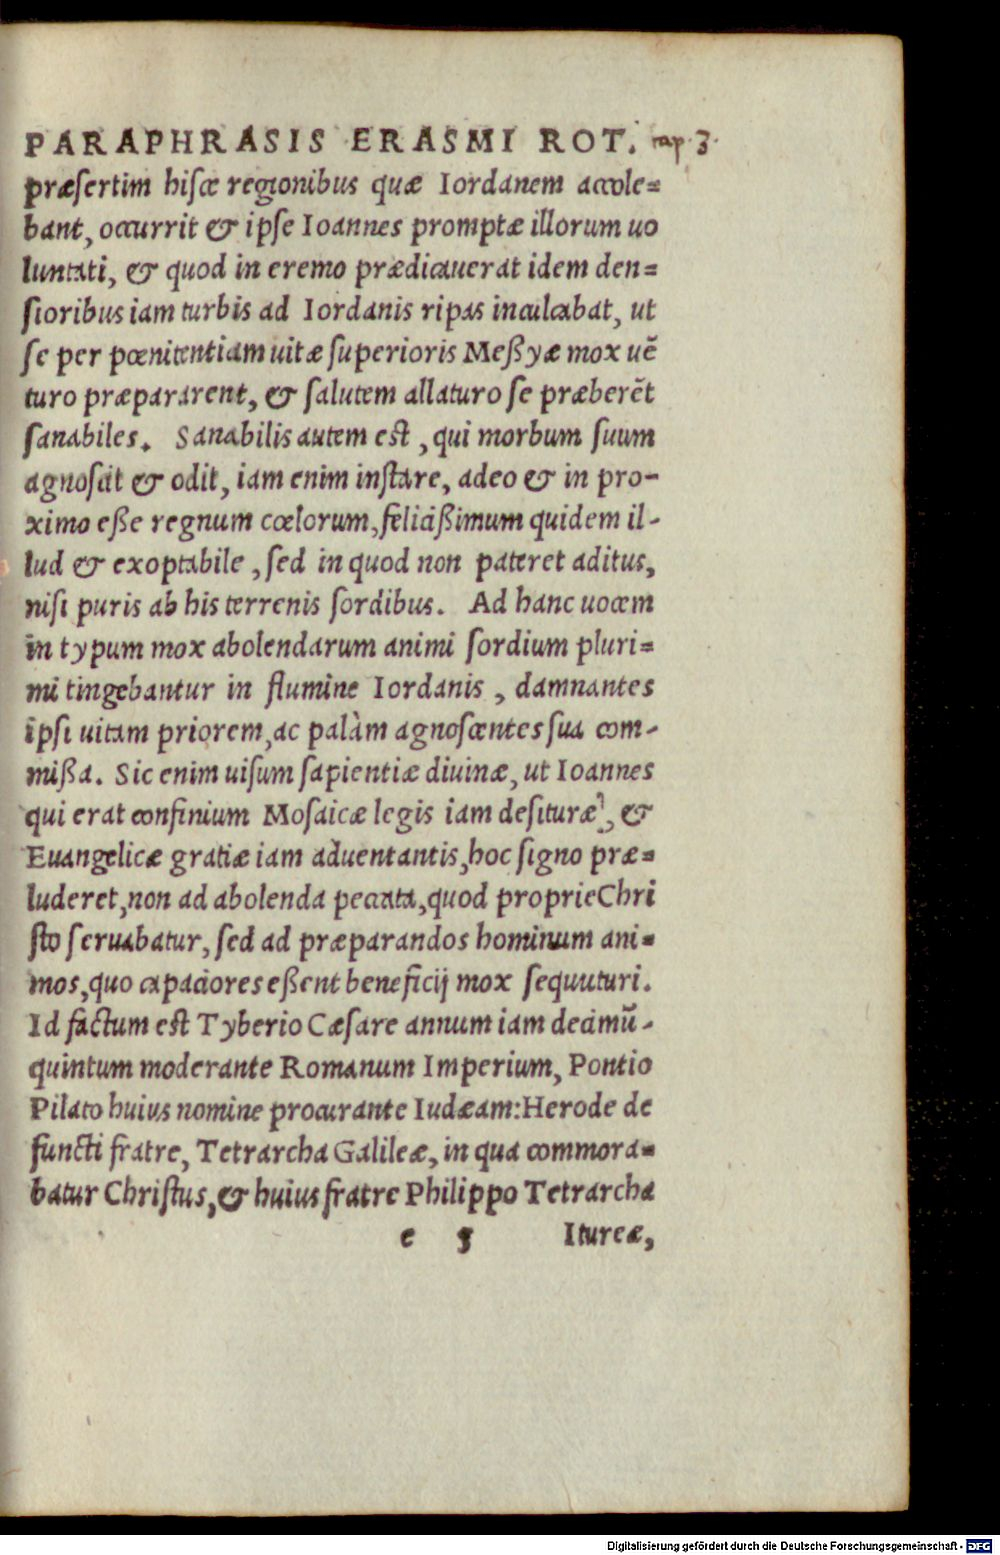 PARAPHRASIS ERASMI ROT. cap 3.
præsertim hisce regionibus quæ Iordanem accole=
bant, occurrit & ipse Ioannes promptæ illorum uo
luntati, & quod in eremo prædicauerat idem den=
sioribus iam turbis ad Iordanis ripas inculcabat, ut
se per pœnitentiam uitæ superioris Meßyæ mox uẽ
turo præpararent, & salutem allaturo se præberẽt
sanabiles. Sanabilis autem est, qui morbum suum
agnoscit & odit, iam enim instare, adeo & in pro-
ximo eße regnum cœlorum, felicißimum quidem il-
lud & exoptabile, sed in quod non pateret aditus,
nisi puris ab his terrenis sordibus. Ad hanc uocem
in typum mox abolendarum animi sordium pluri=
mi tingebantur in flumine Iordanis, damnantes
ipsi uitam priorem, ac palàm agnoscentes sua com-
mißa. Sic enim uisum sapientiæ diuinæ, ut Ioannes
qui erat confinium Mosaicæ legis iam desituræ, &
Euangelicæ gratiæ iam aduentantis, hoc signo præ=
luderet, non ad abolenda peccata, quod proprie Chri
sto seruabatur, sed ad præparandos hominum ani=
mos, quo capaciores eßent beneficij mox sequuturi.
Id factum est Tyberio Cæsare annum iam decimũ-
quintum moderante Romanum Imperium, Pontio
Pilato huius nomine procurante Iudæam: Herode de
functi fratre, Tetrarcha Galileæ, in qua commora=
batur Christus, & huius fratre Philippo Tetrarcha
e 5 Itureæ,
Digitalisierung gefördert durch die Deutsche Forschungsgemeinschaft - DFG